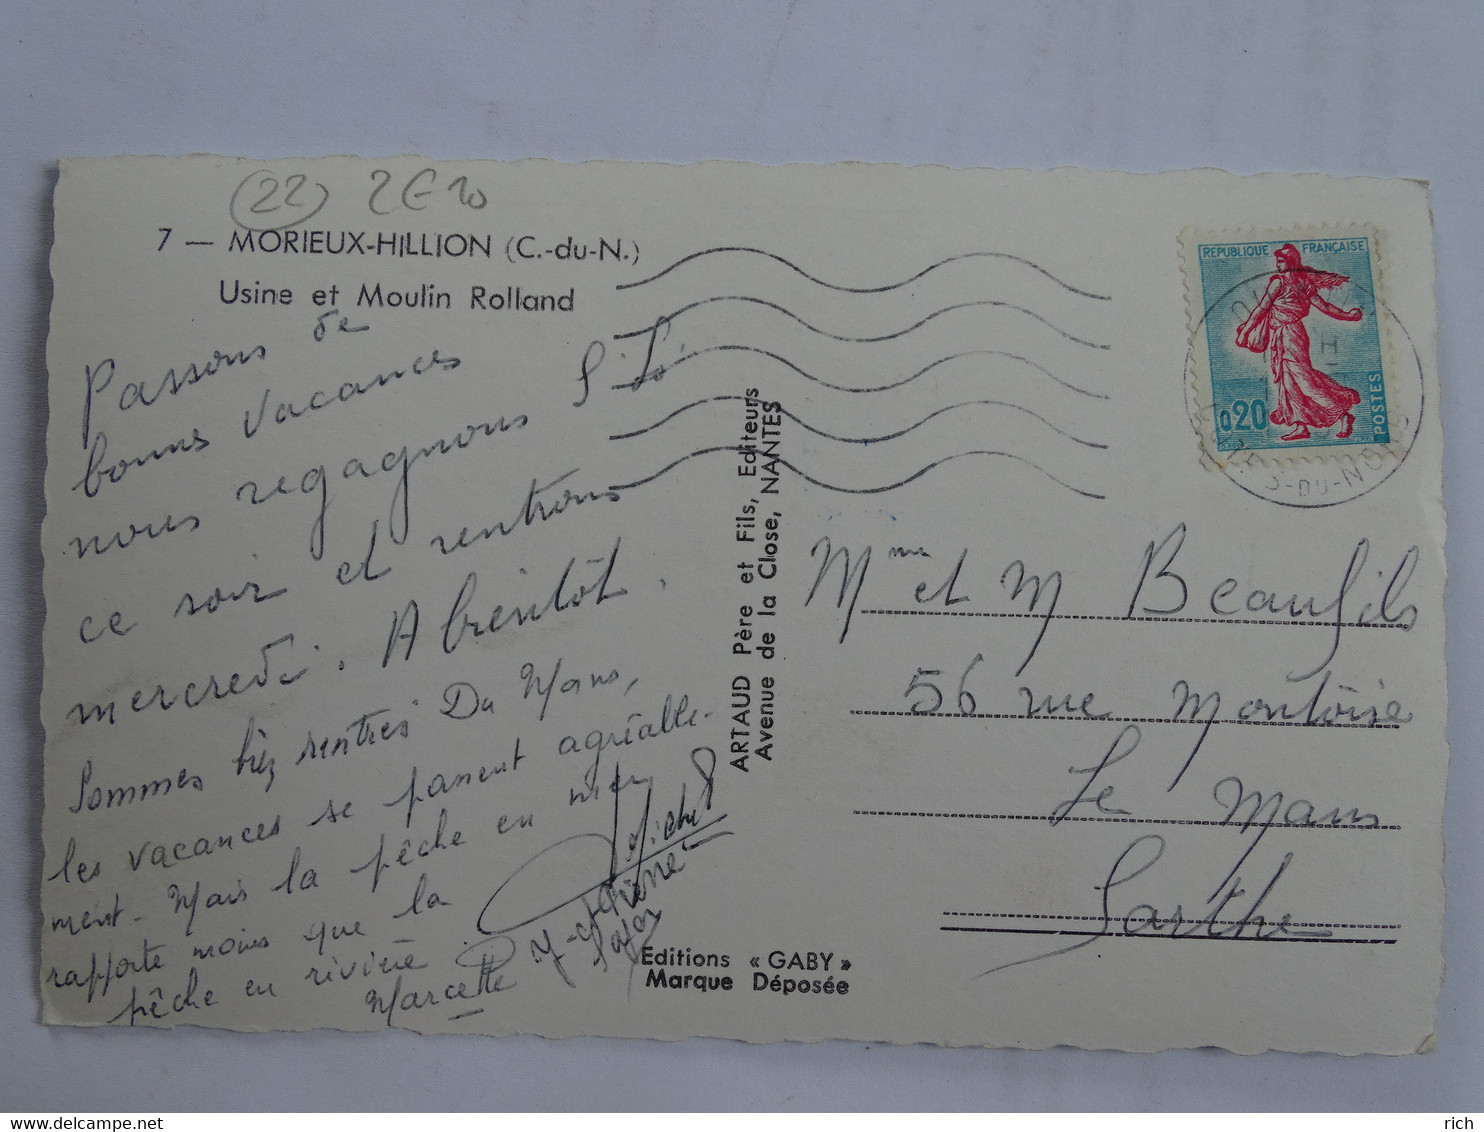 (22) 2€20
7 — MORIEUX-HILLION (C.-du-N.)
Usine et Moulin Rolland
Passons de
bonnes vacances
nous regagnons S. L.
ce soir et rentrons
mercredi. A bientôt.
Sommes bien rentrés Du Mans,
les vacances se passent agréable-
ment. Mais la pêche en mer
rapporte moins que la
pêche en rivière.
Marcette
Michel
Pierre
ARTAUD Père et Fils, Editeurs
Avenue de la Close, NANTES
Editions « GABY »
Marque Déposée
REPUBLIQUE FRANÇAISE
0,20
POSTES
-DU-NORD
Mme et M Beaufils
56 rue Montoise
Le Mans
Sarthe
delcampe.net
rich